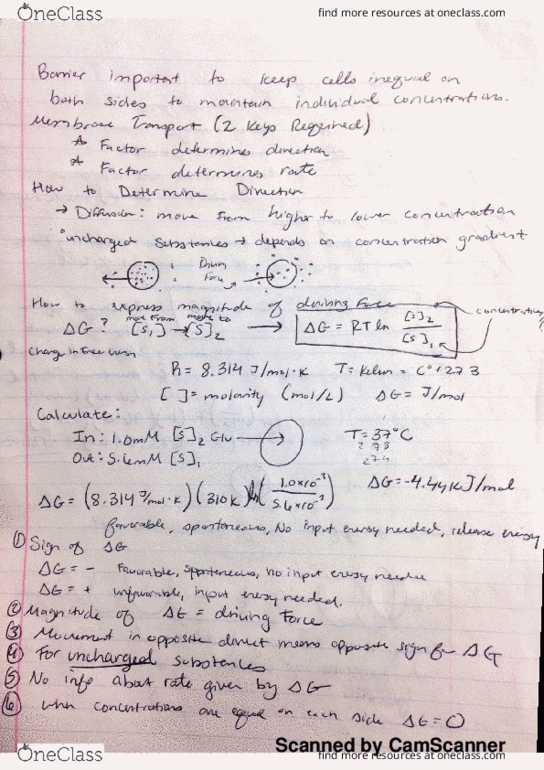 OneClass
find more resources at oneclass.com
Barrier important to keep cells inequal on
both sides to maintain individual concentrations.
Membrane Transport (2 Keys Required)
* Factor determines direction
* Factor determines rate
How to Determine Direction
→ Diffusion: move from higher to lower concentration
*uncharged substances → depends on concentration gradient
Driving
Force
How to express magnitude of driving force
move from move to
ΔG? [S₁] → [S]₂ → ΔG = RT ln [S]₂ / [S]₁
concentration
Change in free
R = 8.314 J/mol·K T = Kelvin = C° + 273
[ ] = molarity (mol/L) ΔG = J/mol
Calculate:
In: 1.0mM [S]₂ Glu
Out: 5.6mM [S]₁
T = 37°C
273
ΔG = (8.314 J/mol·K)(310K) ln(1.0×10⁻³ / 5.6×10⁻³)
ΔG = -4.44 KJ/mol
favorable, spontaneous, No input energy needed, release energy
① Sign of ΔG
ΔG = - favorable, spontaneous, no input energy
ΔG = + unfavorable, input energy needed.
② Magnitude of ΔG = driving Force
③ Movement in opposite direct means opposite sign for ΔG
④ For uncharged substances
⑤ No info about rate given by ΔG
⑥ when concentrations are equal on each side ΔG = 0
Scanned by CamScanner
OneClass
find more resources at oneclass.com